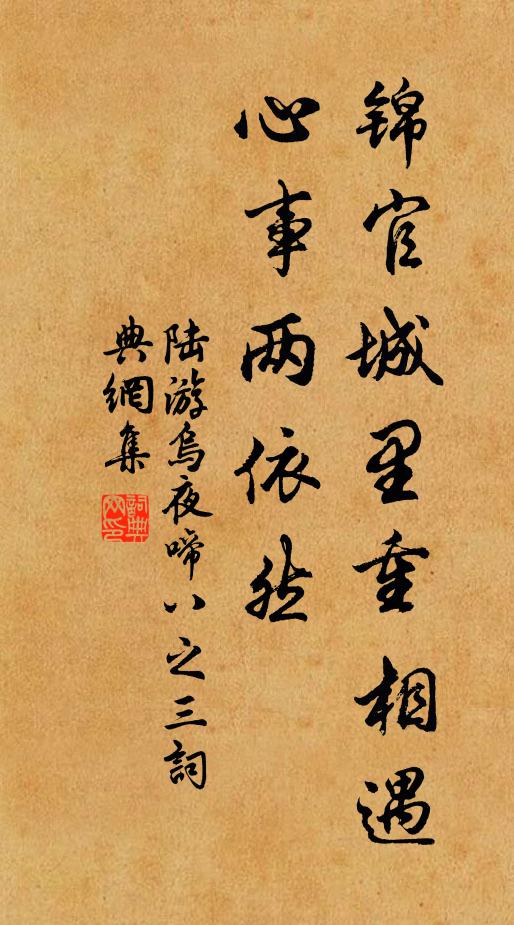 锦官城里重相遇
心事两依然
陆游乌夜啼八之三詞
典網集
詞典網印